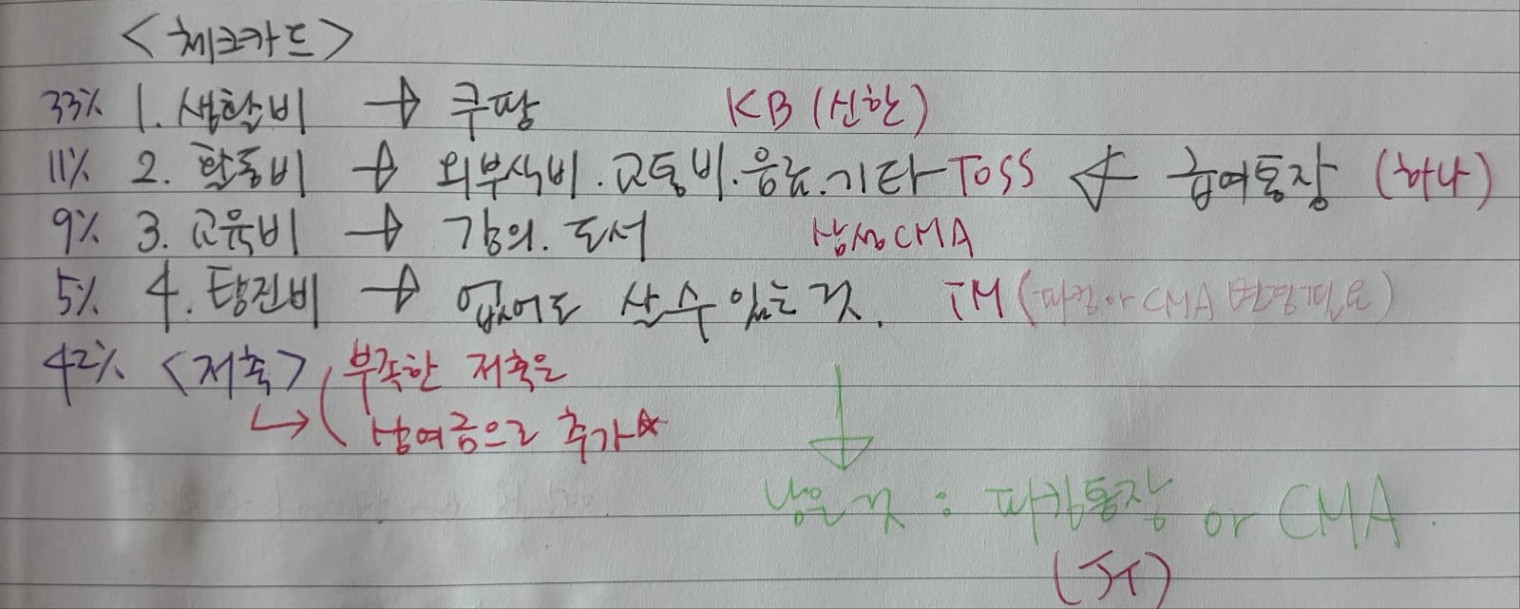 <체크카드>
33% 1. 생활비 → 쿠팡 KB (신한)
11% 2. 활동비 → 외부식비. 교통비. 음료. 기타 TOSS ← 급여통장 (하나)
9% 3. 교육비 → 강의. 도서 삼성CMA
5% 4. 탕진비 → 없어도 살 수 있는 것. TM (파킹 or CMA 변경필요)
42% <저축> (부족한 저축은
↳ 남여금으로 추가☆
↓
남은 것 : 파킹통장 or CMA.
(JT)